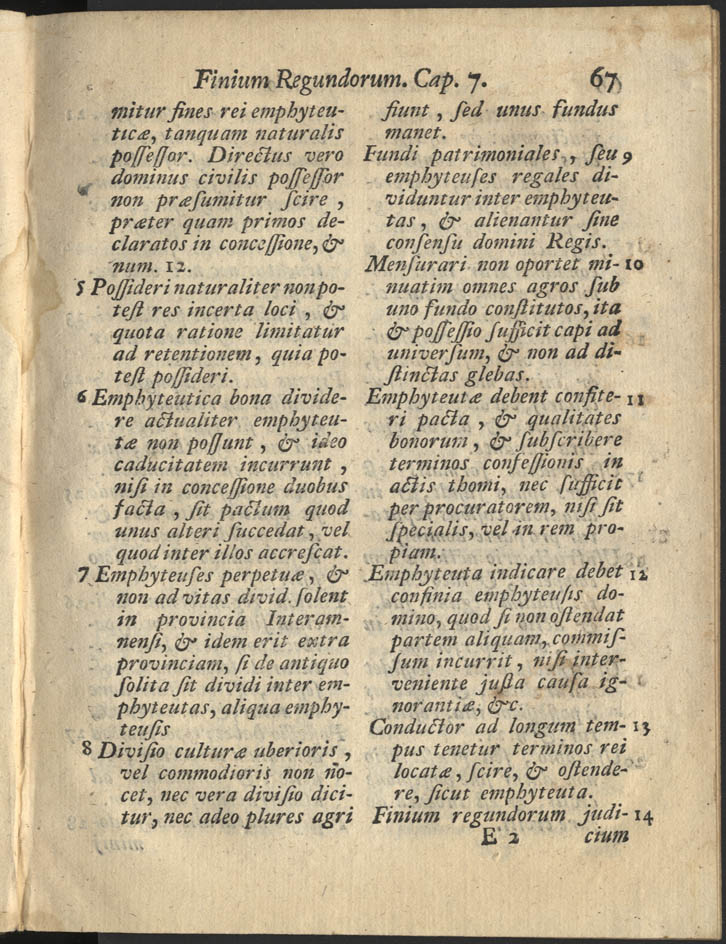 Finium Regundorum. Cap. 7. 67
mitur fines rei emphyteu-
ticæ, tanquam naturalis
poſſeſſor. Directus vero
dominus civilis poſſeſſor
non præſumitur ſcire ,
præter quam primos de-
claratos in conceſſione, &
num. 12.
5 Poſſideri naturaliter non po-
teſt res incerta loci , &
quota ratione limitatur
ad retentionem, quia po-
teſt poſſideri.
6 Emphyteutica bona divide-
re actualiter emphyteu-
tæ non poſſunt , & ideo
caducitatem incurrunt ,
niſi in conceſſione duobus
facta , ſit pactum quod
unus alteri ſuccedat, vel
quod inter illos accreſcat.
7 Emphyteuſes perpetuæ, &
non ad vitas divid. ſolent
in provincia Interam-
nenſi, & idem erit extra
provinciam, ſi de antiquo
ſolita ſit dividi inter em-
phyteutas, aliqua emphy-
teuſis
8 Diviſio culturæ uberioris ,
vel commodioris non no-
cet, nec vera diviſio dici-
tur, nec adeo plures agri
fiunt , ſed unus fundus
manet.
Fundi patrimoniales , ſeu 9
emphyteuſes regales di-
viduntur inter emphyteu-
tas, & alienantur ſine
conſenſu domini Regis.
Menſurari non oportet mi- 10
nuatim omnes agros ſub
uno fundo conſtitutos, ita
& poſſeſſio ſufficit capi ad
univerſum, & non ad di-
ſtinctas glebas.
Emphyteutæ debent confite- 11
ri pacta , & qualitates
bonorum , & ſubſcribere
terminos confeſſionis in
actis thomi, nec ſufficit
per procuratorem, niſi ſit
ſpecialis, vel in rem pro-
piam.
Emphyteuta indicare debet 12
confinia emphyteuſis do-
mino, quod ſi non oſtendat
partem aliquam, commiſ-
ſum incurrit , niſi inter-
veniente juſta cauſa ig-
norantiæ, &c.
Conductor ad longum tem- 13
pus tenetur terminos rei
locatæ, ſcire, & oſtende-
re, ſicut emphyteuta.
Finium regundorum judi- 14
E 2 cium